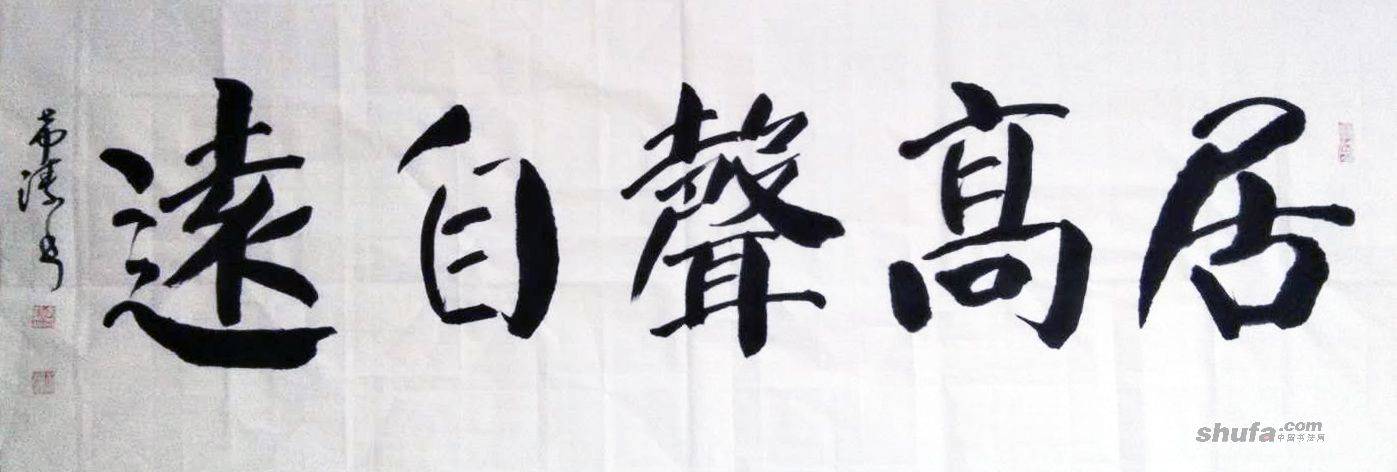 居高聲自遠
shufa.com
中国书法网